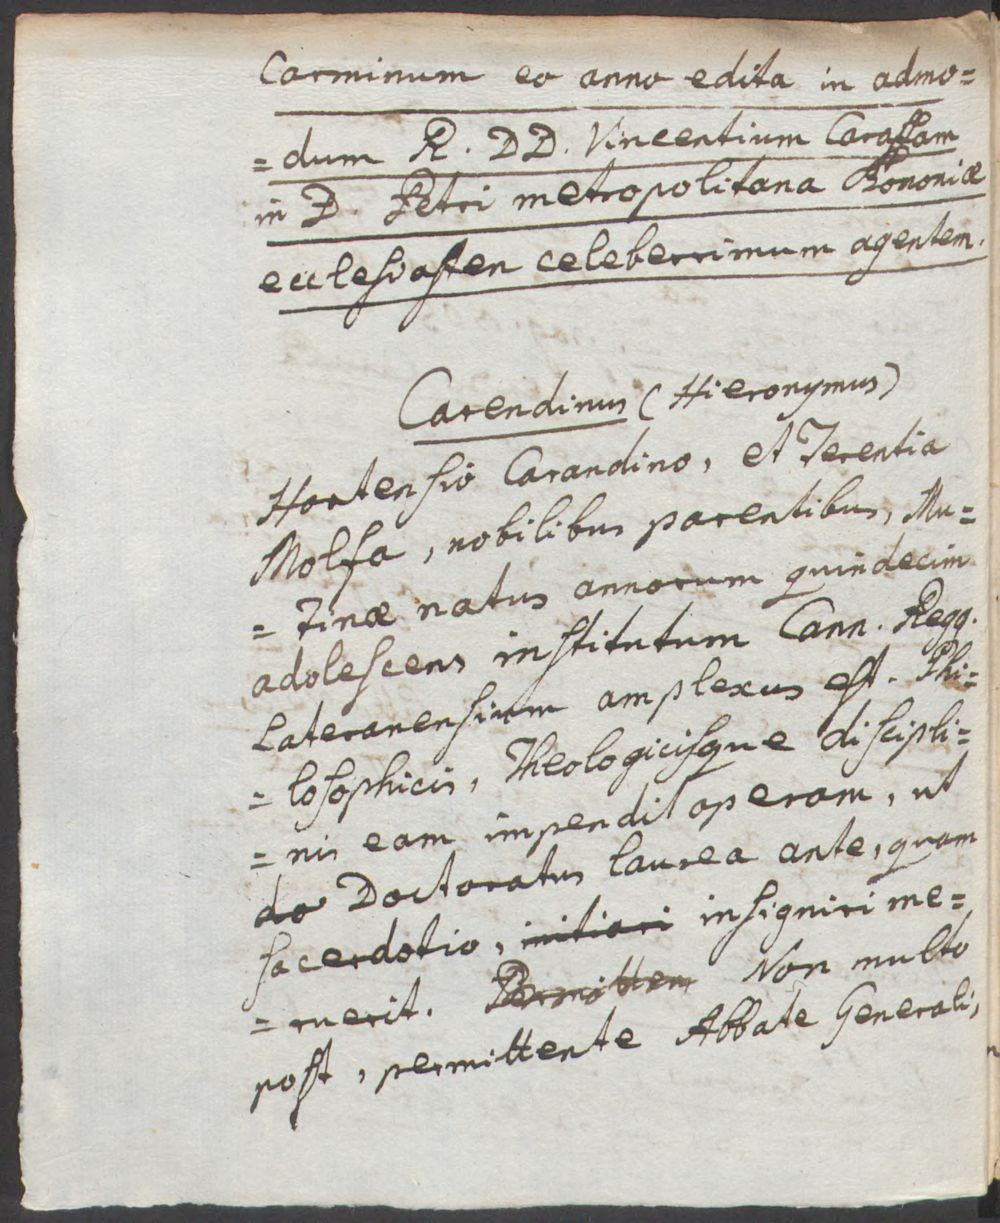 Carminum eo anno edita in admo=
=dum R. DD. Vincentium Caraffam
in D. Petri metropolitana Bononiæ
ecclesiasten celeberrimum agentem.
Carendinus (Hieronymus)
Hortensio Carandino, et Terentia
Molsa, nobilibus parentibus, Mu=
=tinæ natus annorum quindecim
adolescens institutum Cann. Regg.
Lateranensium amplexus est. Phi=
=losophicis, Theologicisque discipli=
=nis eam impendit operam, ut
do Doctoratus laurea ante, quam
sacerdotio, initiari insigniri me=
=ruerit. Permitten Non multo
post, permittente Abbate Generali,